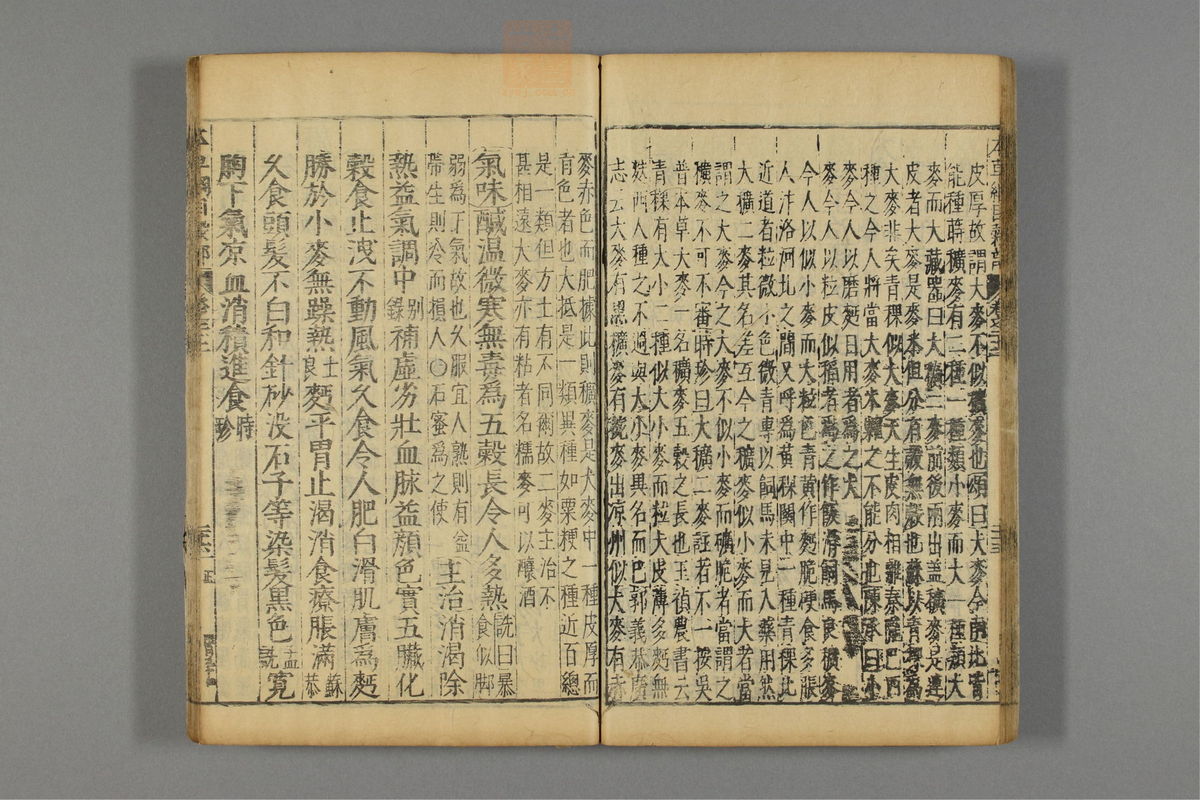 皮厚故謂大麥不似穬麥也頌曰大麥今南北皆
能種蒔穬麥有二種一種類小麥而大一種類大
麥而大藏器曰大穬二麥前後兩出蓋穬麥是連
皮者大麥是麥米但分有殼無殼也蘇以青稞為
大麥非矣青稞似大麥天生皮肉相離秦隴巴西
種之今人將當大麥米糶之不能分也陳承曰小
麥今人以磨麪日用者為之大
麥今人以粒皮似稻者為之作飯滑飼馬良穬麥
今人以似小麥而大粒色青黃作麪脆硬食多脹
人汴洛河北之間又呼為黃稞關中一種青稞比
近道者粒微小色微青專以飼馬未見入藥用然
大穬二麥其名差互今之穬麥似小麥而大者當
謂之大麥今之大麥不似小麥而礦脆者當謂之
穬麥不可不審時珍曰大穬二麥註者不一按吳
普本草大麥一名穬麥五穀之長也王禎農書云
青稞有大小二種似大小麥而粒大皮薄多麪無
麩西人種之不過與大小麥異名而巳郭義恭廣
志云大麥有黑穬麥有䅘麥出凉州似大麥有赤
麥赤色而肥據此則穬麥是大麥中一種皮厚而
有色者也大抵是一類異種如粟粳之種近百總
是一類但方土有不同爾故二麥主治不
甚相遠大麥亦有粘者名糯麥可以釀酒
氣味鹹温微寒無毒為五穀長令人多熱詵曰暴食似脚
弱為下氣故也久服宜人熟則有益
帶生則冷而損人○石蜜為之使
主治消渴除
熱益氣調中别錄補虛劣壯血脉益顔色實五臟化
穀食止洩不動風氣久食令人肥白滑肌膚為麪
勝於小麥無躁熱士良麪平胃止渴消食療脹滿蘇恭
久食頭髮不白和針砂没石子等染髮黒色孟詵寛
胸下氣凉血消積進食時珍